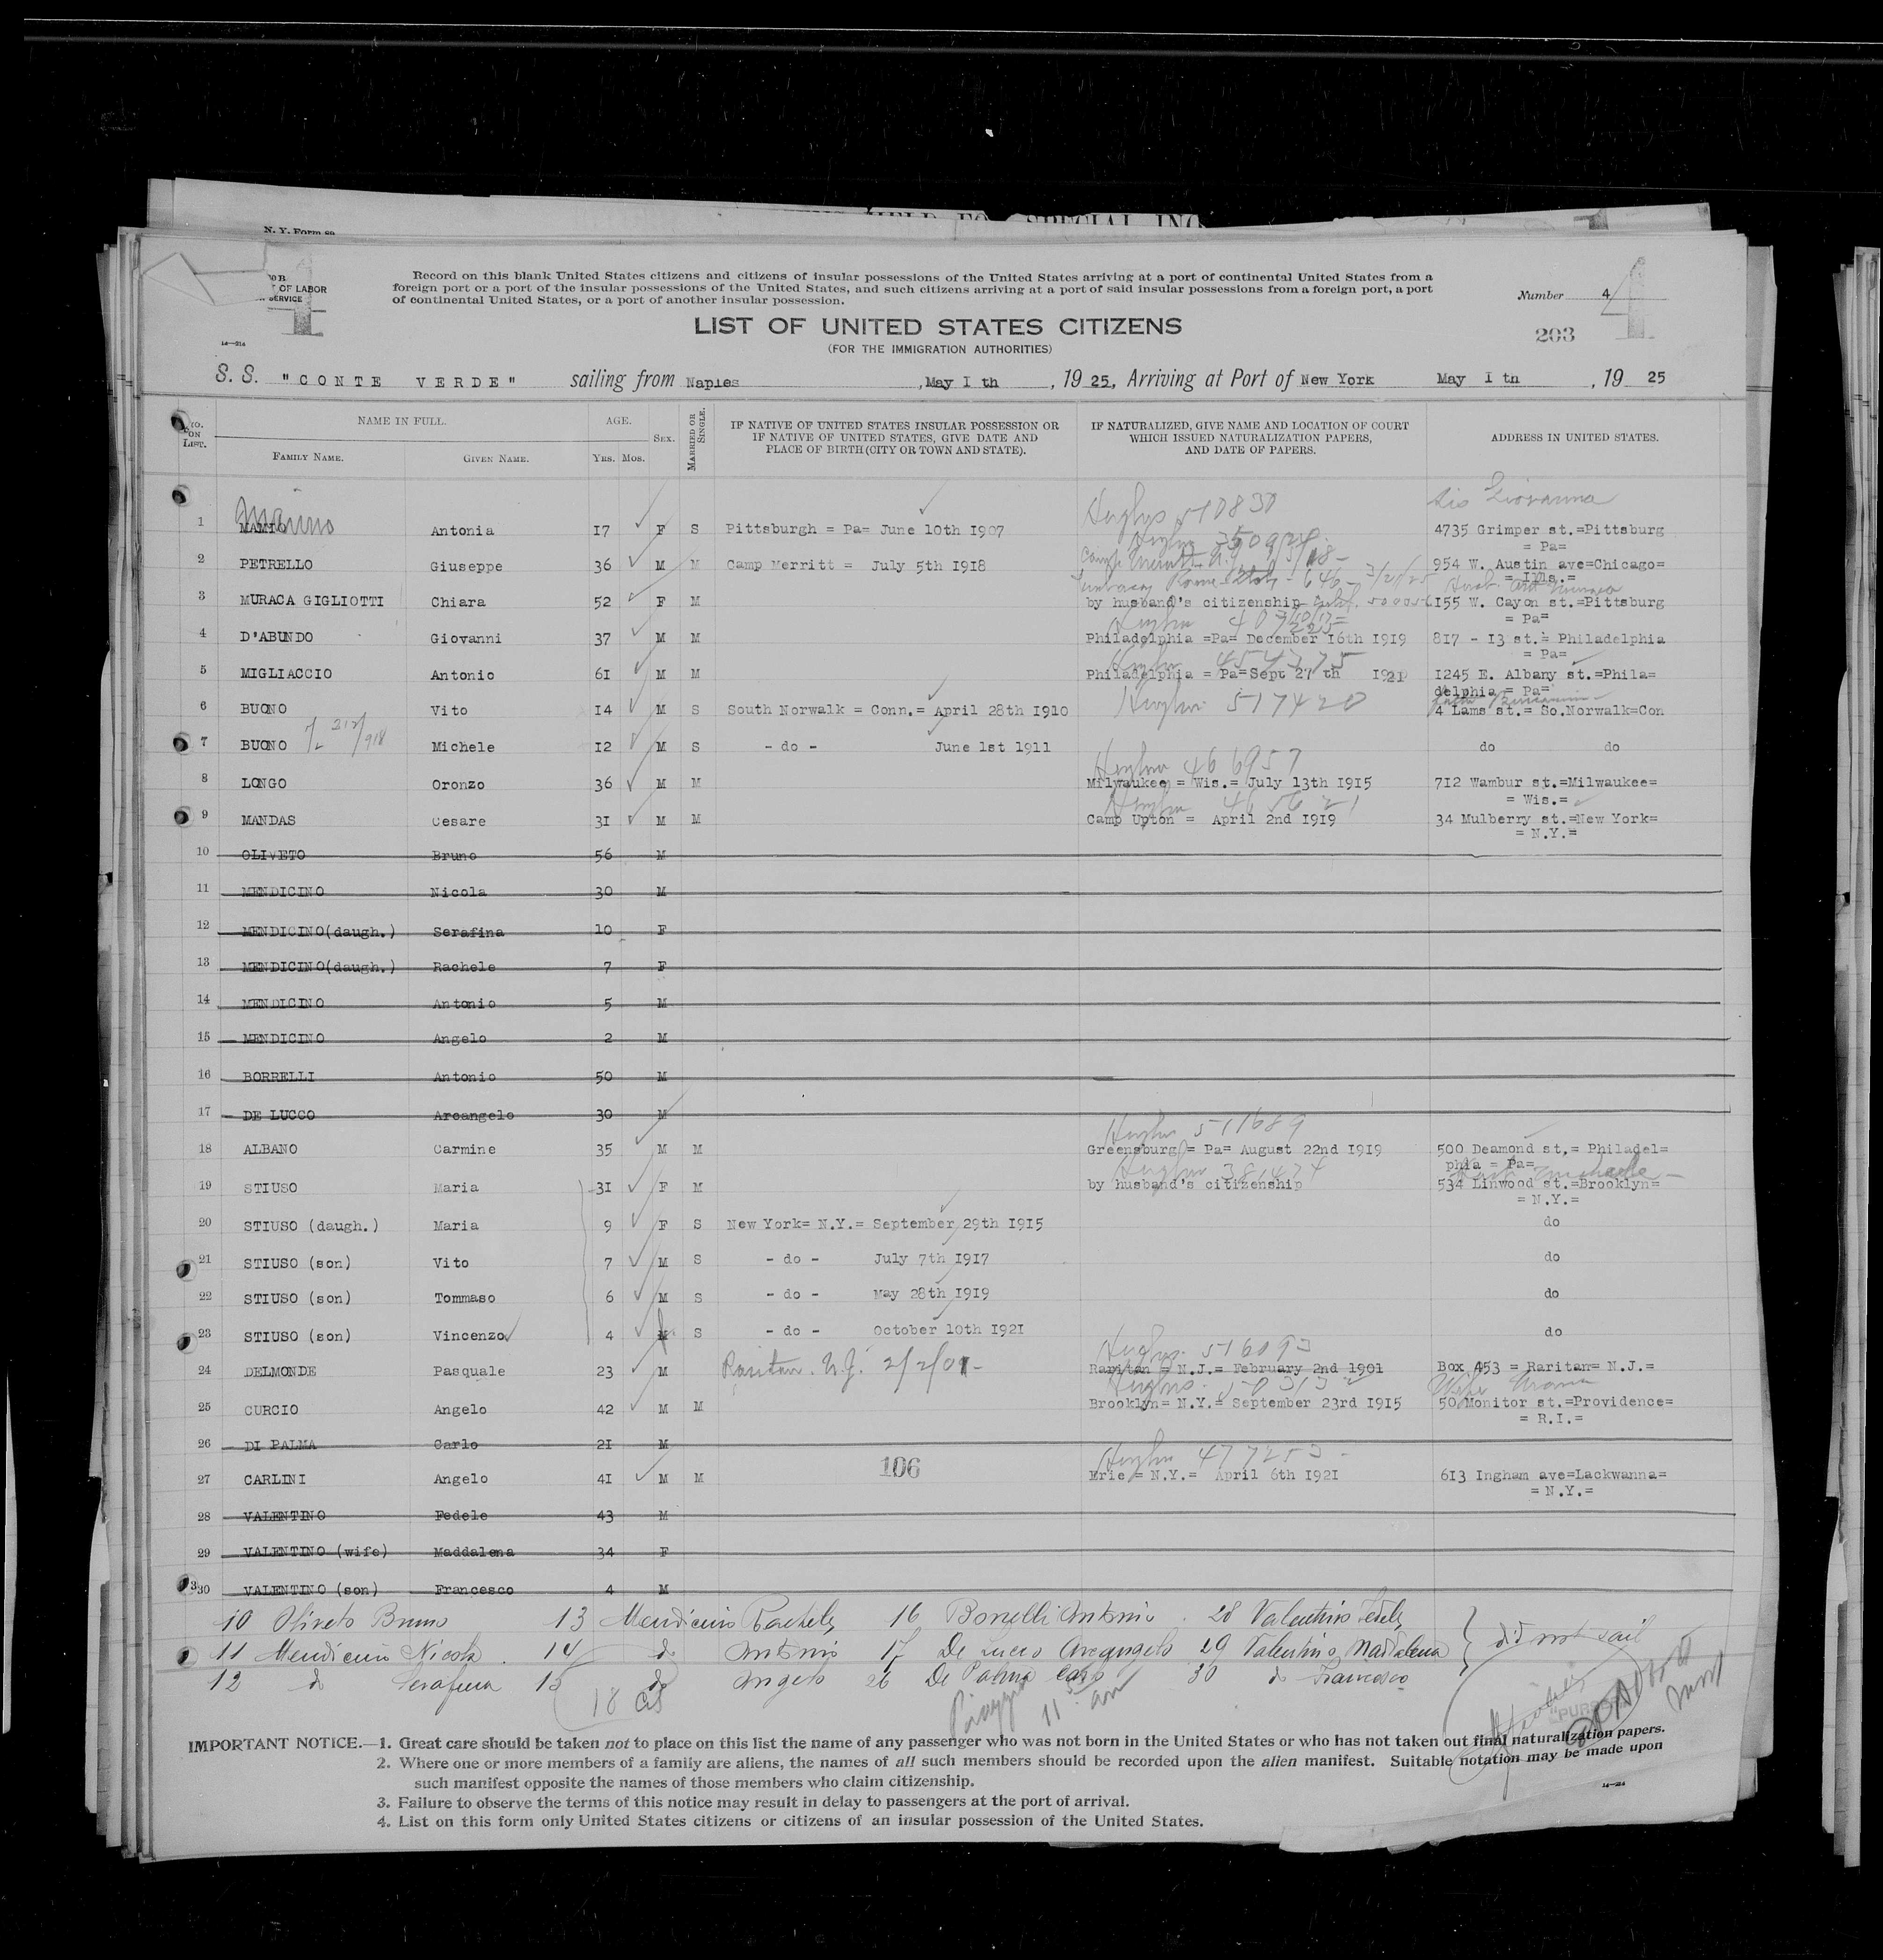 N. Y. Form
HELD FOR SPECIAL INQ
OF LABOR
SERVICE
Record on this blank United States citizens and citizens of insular possessions of the United States arriving at a port of continental United States from a
foreign port or a port of the insular possessions of the United States, and such citizens arriving at a port of said insular possessions from a foreign port, a port
of continental United States, or a port of another insular possession.
Number 4
203
LIST OF UNITED STATES CITIZENS
(FOR THE IMMIGRATION AUTHORITIES)
14—214
S. S. "CONTE VERDE" sailing from Naples, May I th, 1925, Arriving at Port of New York May I th, 1925
NO. ON LIST. NAME IN FULL. FAMILY NAME. GIVEN NAME. AGE. YRS. MOS. SEX. MARRIED OR SINGLE.
IF NATIVE OF UNITED STATES INSULAR POSSESSION OR
IF NATIVE OF UNITED STATES, GIVE DATE AND
PLACE OF BIRTH (CITY OR TOWN AND STATE).
IF NATURALIZED, GIVE NAME AND LOCATION OF COURT
WHICH ISSUED NATURALIZATION PAPERS,
AND DATE OF PAPERS.
ADDRESS IN UNITED STATES.
Giovanna
510830
1 Antonia 17 F S Pittsburgh = Pa= June 10th 1907 4735 Grimper st.=Pittsburg
= Pa=
2 PETRELLO Giuseppe 36 M M Camp Merritt = July 5th 1918 954 W. Austin ave=Chicago=
= Ills.=
3 MURACA GIGLIOTTI Chiara 52 F M by husband's citizenship 1155 W. Cayon st.=Pittsburg
= Pa=
4 D'ABUNDO Giovanni 37 M M Philadelphia =Pa= December 16th 1919 817 - 13 st.= Philadelphia
= Pa=
454775
5 MIGLIACCIO Antonio 61 M M Philadelphia = Pa=Sept 27 th 1921 1245 E. Albany st.=Phila=
delphia = Pa=
6 BUONO Vito 14 M S South Norwalk = Conn.= April 28th 1910 517420 4 Lams st.= So.Norwalk=Con
7 BUONO Michele 12 M S - do - June 1st 1911 do do
466957
8 LONGO Oronzo 36 M M Milwaukee = Wis.= July 13th 1915 712 Wambur st.=Milwaukee=
= Wis.=
9 MANDAS Cesare 31 M M Camp Upton = April 2nd 1919 34 Mulberry st.=New York=
= N.Y.=
10 OLIVETO Bruno 56 M
11 MENDICINO Nicola 30 M
12 MENDICINO(daugh.) Serafina 10 F
13 MENDICINO(daugh.) Rachele 7 F
14 MENDICINO Antonio 5 M
15 MENDICINO Angelo 2 M
16 BORRELLI Antonio 50 M
17 DE LUCCO Arcangelo 30 M
511689
18 ALBANO Carmine 35 M M Greensburg = Pa= August 22nd 1919 500 Deamond st,= Philadel=
phia = Pa=
19 STIUSO Maria 31 F M by husband's citizenship 534 Linwood st.=Brooklyn=
= N.Y.=
20 STIUSO (daugh.) Maria 9 F S New York= N.Y.= September 29th 1915 do
21 STIUSO (son) Vito 7 M S - do - July 7th 1917 do
22 STIUSO (son) Tommaso 6 M S - do - May 28th 1919 do
23 STIUSO (son) Vincenzo 4 M S - do - October 10th 1921 do
24 DELMONDE Pasquale 23 M Raritan. N.J. 2/2/01- Raritan = N.J.= February 2nd 1901 Box 453 = Raritan= N.J.=
25 CURCIO Angelo 42 M M Brooklyn= N.Y.= September 23rd 1915 50 Monitor st.=Providence=
= R.I.=
26 DI PALMA Carlo 21 M
106
27 CARLINI Angelo 41 M M Erie = N.Y.= April 6th 1921 613 Ingham ave=Lackwanna=
= N.Y.=
28 VALENTINO Fedele 43 M
29 VALENTINO (wife) Maddalena 34 F
30 VALENTINO (son) Francesco 4 M
10 Oliveto Bruno 13 Mendicino Rachele 16 Borrelli Antonio 28 Valentino Fedele
11 Mendicino Nicola 14 do Antonio 17 De Lucco Arcangelo 29 Valentino Maddalena did not sail
12 do Serafina 15 do Angelo 26 De Palma Carlo 30 do Francesco
PURSER
IMPORTANT NOTICE.—1. Great care should be taken not to place on this list the name of any passenger who was not born in the United States or who has not taken out final naturalization papers.
2. Where one or more members of a family are aliens, the names of all such members should be recorded upon the alien manifest. Suitable notation may be made upon
such manifest opposite the names of those members who claim citizenship.
3. Failure to observe the terms of this notice may result in delay to passengers at the port of arrival.
4. List on this form only United States citizens or citizens of an insular possession of the United States.
14—214